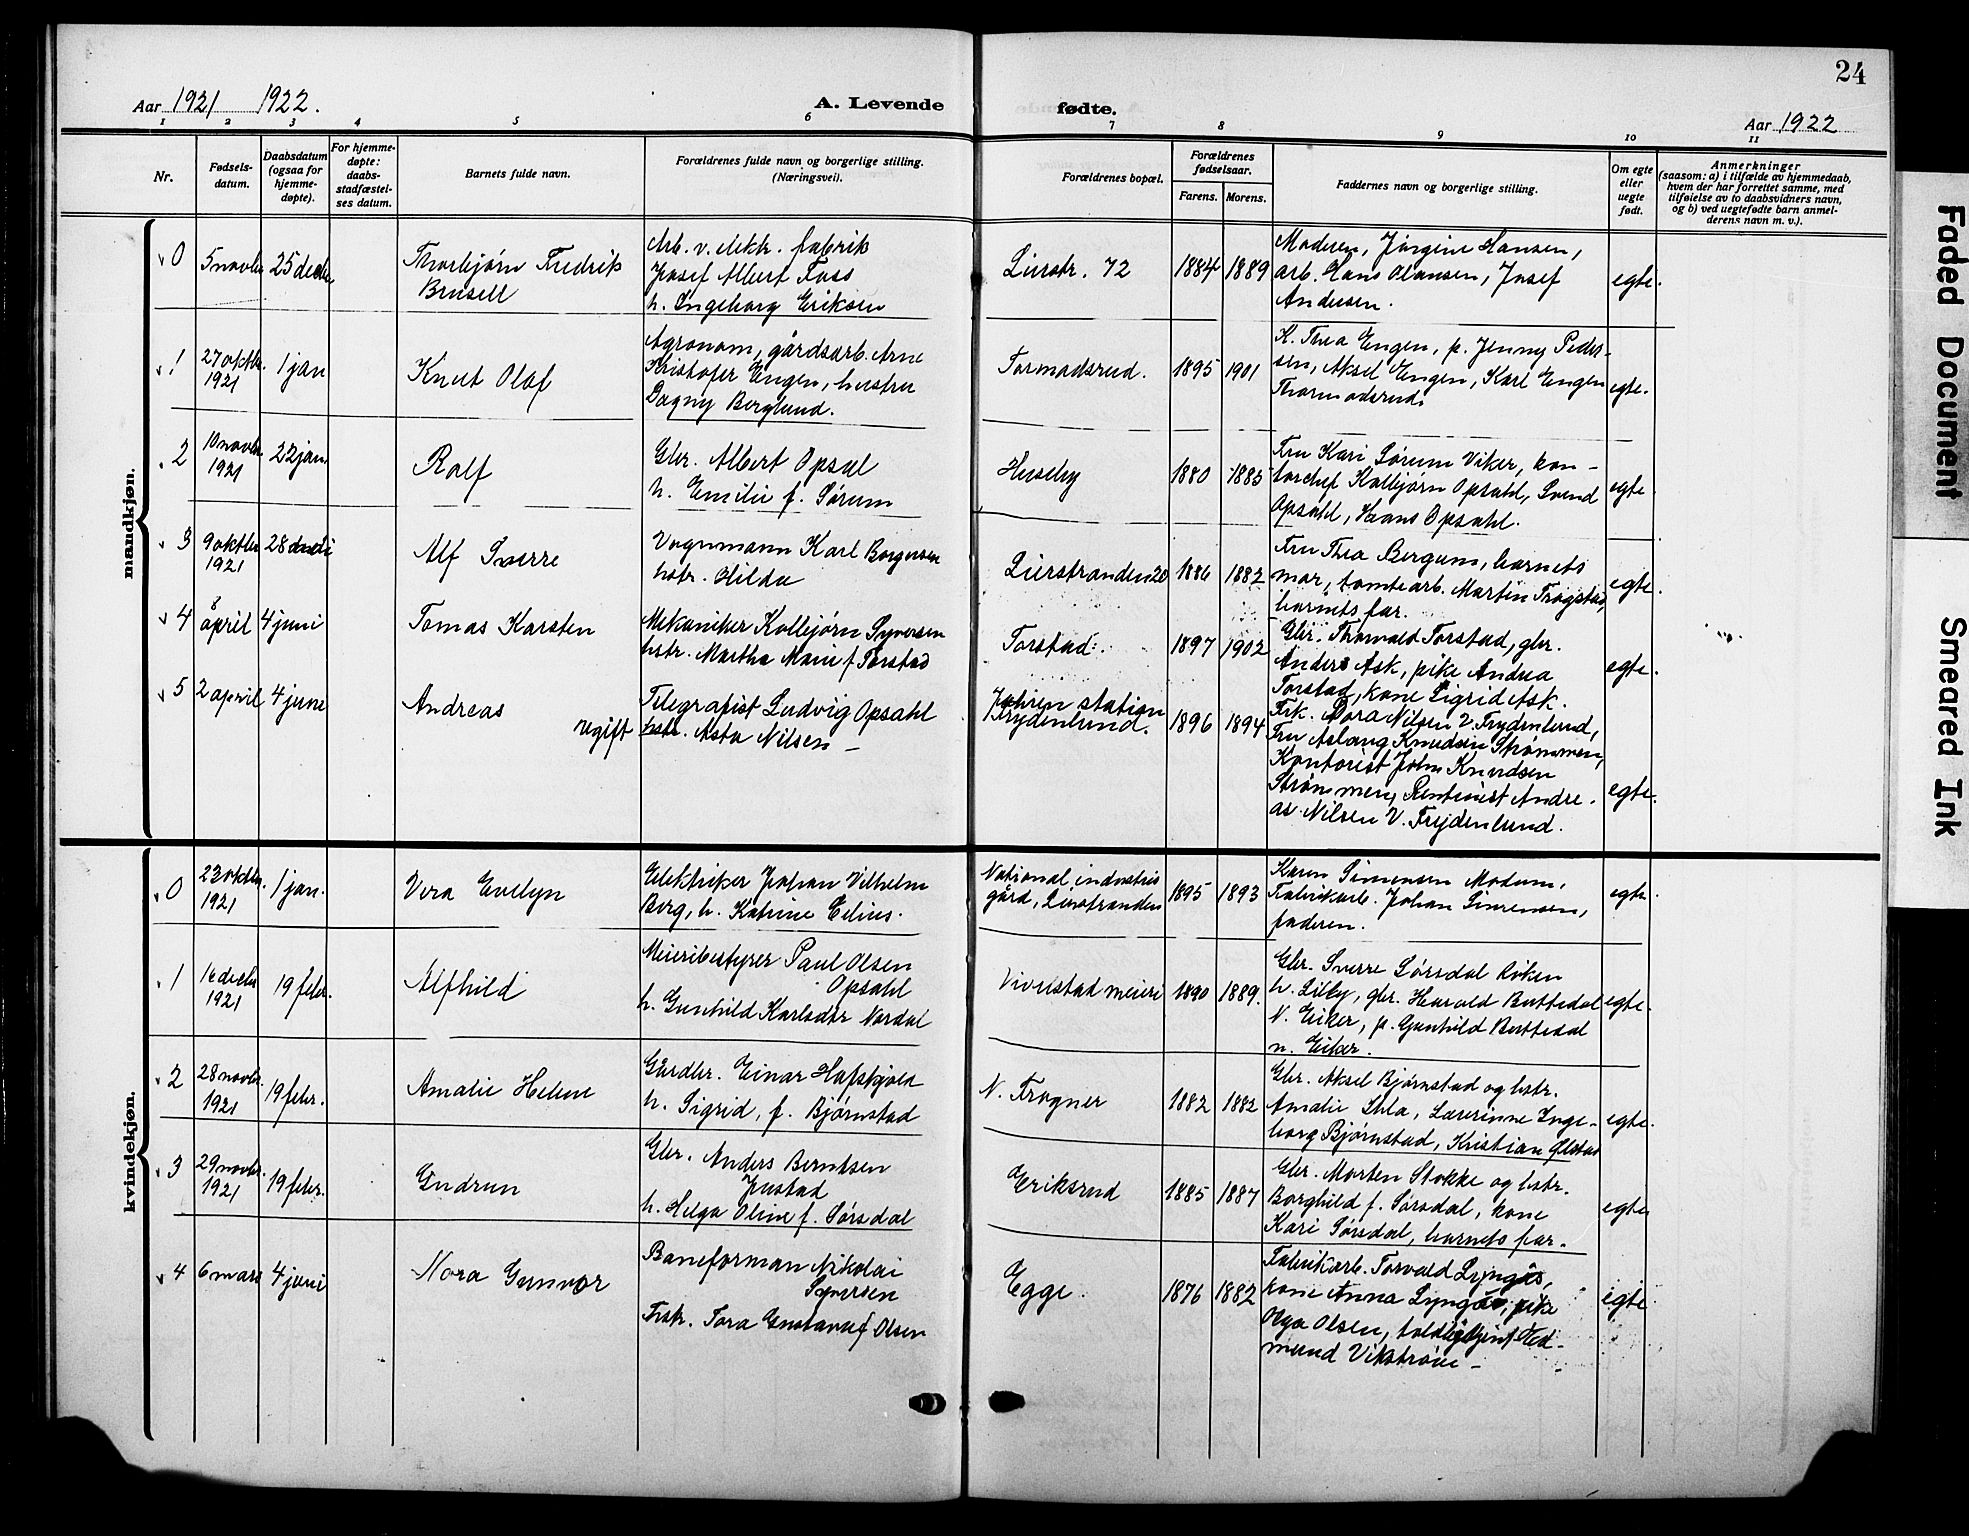 24
Aar 1921 1922.
A. Levende
fødte.
Aar 1922
1 2 3 4 5 6 7 8 9 10 11
Nr.
Fødsels-
datum.
Daabsdatum
(ogsaa for
hjemme-
døpte).
For hjemme-
døpte:
daabs-
stadfæstel-
ses datum.
Barnets fulde navn.
Forældrenes fulde navn og borgerlige stilling.
(Næringsvei).
Forældrenes bopæl.
Forældrenes
fødselsaar.
Farens. Morens.
Faddernes navn og borgerlige stilling.
Om egte
eller
uegte
født.
Anmerkninger
(saasom: a) i tilfælde av hjemmedaab,
hvem der har forrettet samme, med
tilføielse av to daabsvidners navn,
og b) ved uegtefødte barn anmel-
derens navn m. v.).
mandkjøn.
0
5 novbr
25 decbr.
Thorbjørn Fredrik
Brusell
Arb. v. elektr. fabrik
Josef Albert Foss
h. Ingeborg Eriksen
Lierstr. 72
1884
1889
Moderen, Jørgine Hansen,
arb. Hans Olausen, Josef
Andersen.
egte.
1
27 oktbr.
1921
1 jan
Knut Olaf
Agronom, gårdsarb. Arne
Kristofer Engen, hustru
Dagny Berglund.
Tormodsrud.
1895
1901
K. Thea Engen, p. Jenny Peder-
sen, Aksel Engen, Karl Engen
Thormodsrud.
egte.
2
10 novbr.
1921
22 jan.
Rolf
Gbr. Albert Opsal
h. Emilie f. Sørum
Huseby
1880
1885
Fru Kari Sørum Viker, kon-
torchef Kolbjørn Opsahl, Svend
Opsahl, Hans Opsahl.
egte.
3
9 oktbr
1921
Alf Sverre
Vognmann Karl Borgersen
hstr. Hilda
Lierstranden 20
1886
1882
Fru Thea Bergum, barnets
mor, tomtearb. Martin Trogstad,
barnets far.
egte.
4
8
april
4 juni
Tomas Karsten
Mekaniker Kolbjørn Syversen
hstr. Martha Marie f. Torstad
Torstad.
1897
1902
Gbr. Thorvald Torstad, gbr.
Anders Ask, pike Andrea
Torstad, kone Sigrid Ask.
egte.
5
2 april
4 june
Andreas
Telegrafist Ludvig Opsahl
ugift hstr. Asta Nilsen –
station
Frydenlund.
1896
1894
Frk. Dora Nilsen V. Frydenlund,
Fru Aslaug Knudsen Strømmen,
Kontorist John Knudsen
Strømmen, Rentenist Andre-
as Nilsen V. Frydenlund.
egte.
kvindekjøn.
0
23 oktbr.
1921
1 jan.
Vera Evelyn
Elektriker Johan Vilhelm
Berg, h. Katrine Eilius.
National industris
gård, Lierstranden
1895
1893
Karen Simensen Modum,
Fabrikarb. Johan Simensen,
faderen.
egte.
1
16 decbr
1921
19 febr.
Alfhild
Meieribestyrer Paul Olsen
Opsahl
h. Gunhild Karlsdtr Nordal
Vivelstad meieri
1890
1889.
Gbr. Sverre Sørsdal Röken
h. Lilly, gbr. Harald Buttedal
N. Eiker, p. Gunhild Buttedal
n. Eiker.
egte.
2
28 novbr.
1921
19 febr.
Amalie Helene
Gårdbr. Einar Hofskjold
h. Sigrid, f. Bjørnstad
N. Frogner
1882
1882
Gbr. Aksel Bjørnstad og hstr.
Amalie Shla, Lærerinne Inge-
borg Bjørnstad, Kristian Ølstad
egte.
3
29 novbr.
1921
19 febr.
Gudrun
Gbr. Anders Berntsen
Justad
h. Helga Oline f. Sørsdal
Eriksrud
1885
1887
Gbr. Morten Stokke og hstr.
Borghild f. Sørsdal, kone
Kari Sørsdal, barnets far.
egte
4
6 mars
4 juni
Nora Gunvor
Baneforman Nikolai
Syversen
Hstr. Tora Gustava f Olsen
Egge.
1876
1882
Fabrikarb. Torvald Lyngås,
kone Anna Lyngås, pike
Olga Olsen,
mund Vikstrøm –
egte.
Faded Document
Smeared Ink